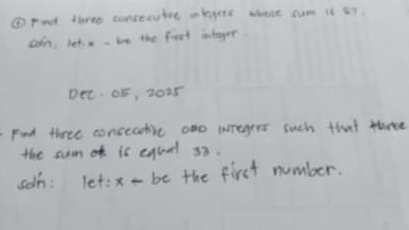 ② Find three consecutive integers whose sum is 87.
soln: let: x - be the first integer.
Dec. 05, 2025
- Find three consecutive ODD INTEGERS such that three
the sum of is equal 33.
soln: let: x ← be the first number.